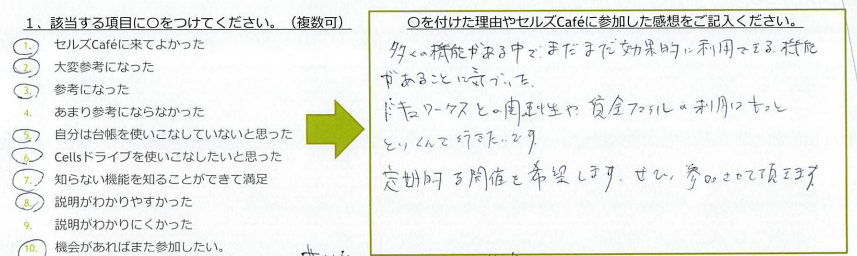 1、該当する項目に〇をつけてください。（複数可）
1. セルズCaféに来てよかった
2. 大変参考になった
3. 参考になった
4. あまり参考にならなかった
5. 自分は台帳を使いこなしていないと思った
6. Cellsドライブを使いこなしたいと思った
7. 知らない機能を知ることができて満足
8. 説明がわかりやすかった
9. 説明がわかりにくかった
10. 機会があればまた参加したい。
〇を付けた理由やセルズCaféに参加した感想をご記入ください。
多くの機能がある中で、まだまだ効果的に利用できる機能
があることに気づいた。
ドキュワークスとの関連性や賃金ファイルの利用はもっと
とりくんで行きたいです。
定期的な開催を希望します。ぜひ、参加させて頂きます